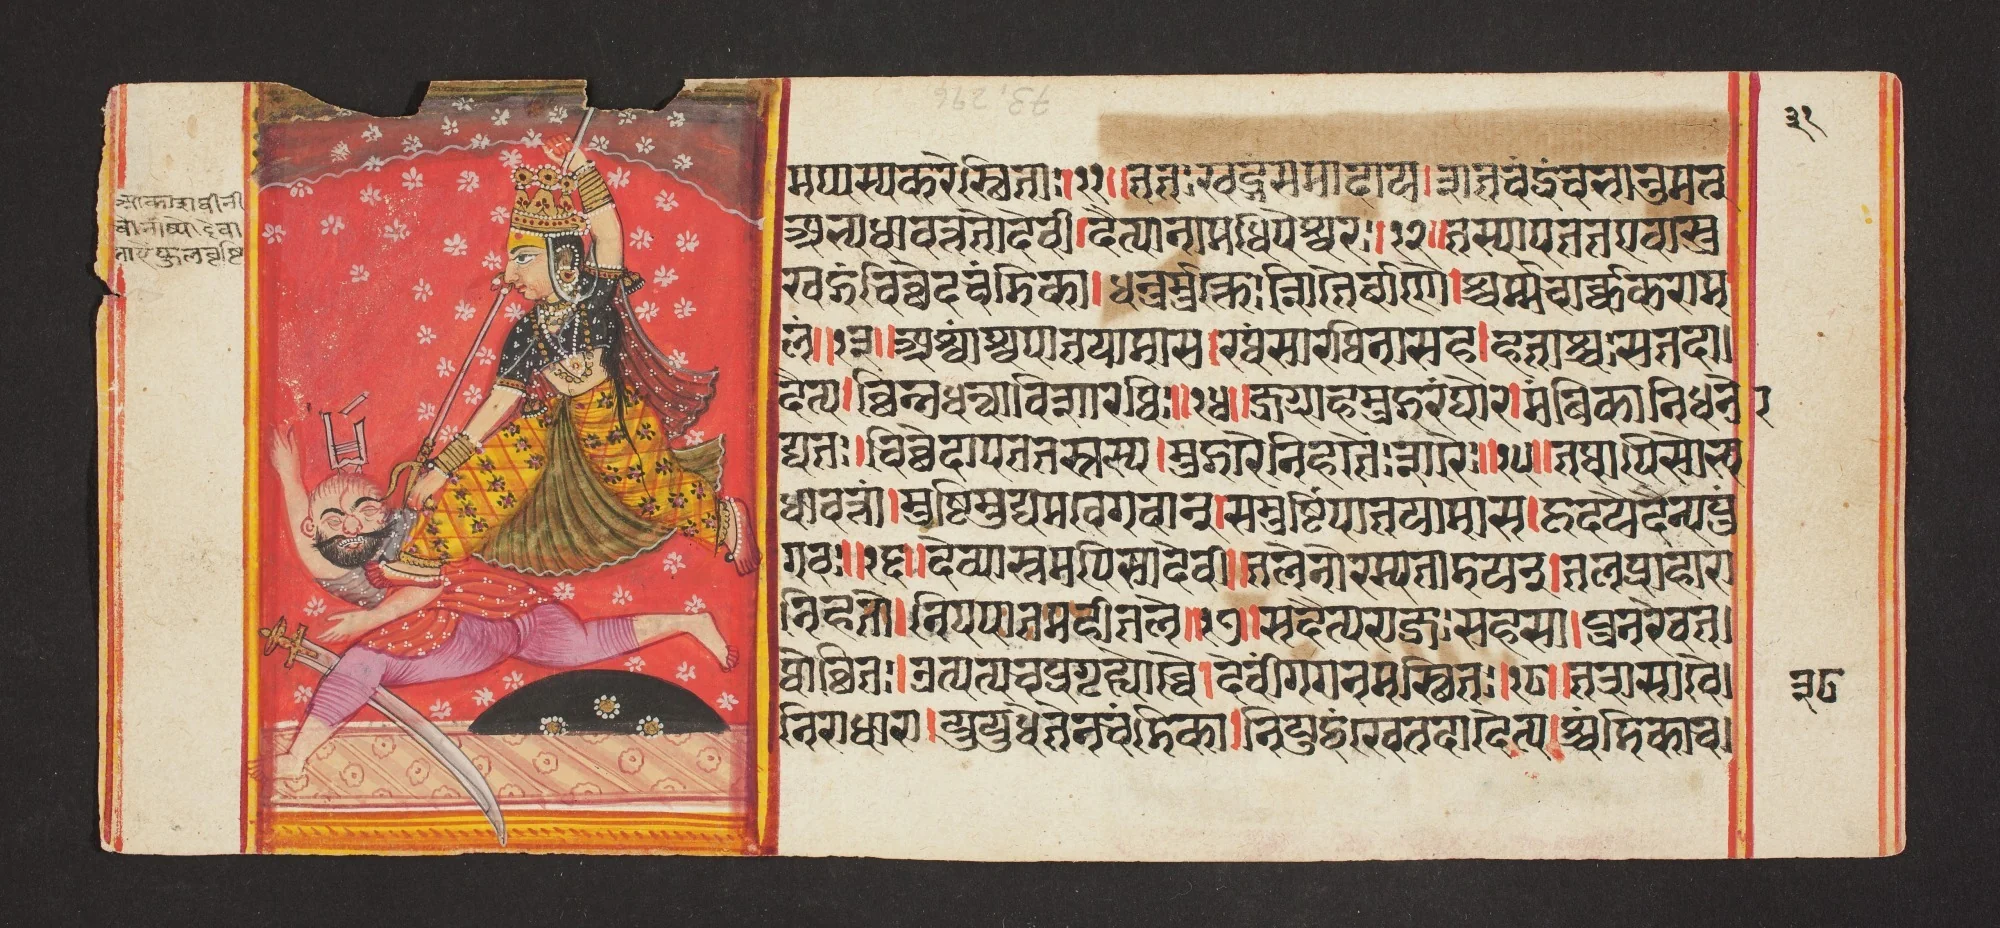 आकाशधीनी
मप्यस्यकरेस्थिता:।११॥ततःखड्गंसमादाय।शतचंद्रंचभानुमत्
अभ्यधावत्ततोदेवी।दैत्यानामधिपेश्वरः।१२॥तस्यापतत
खड्गंचिच्छेदचंडिका।धनुर्मुक्तःशितैर्बाणै।श्चर्म्मचार्ककराम
लं॥१३॥अश्वांश्चपातयामास।रथंसारथिनासह।हताश्वःसतदा।
दैत्य।श्छिन्नधन्वाविशारथिः॥१४॥जग्राहमुद्गरंघोर।मंबिकानिधने
द्यतः।चिच्छेदापततस्तस्य।मुद्गरंनिशितैःशरैः॥१५॥तथापिसोभ्य
धावत्तां।मुष्टिमुद्यमवेगवान्।समुष्टिंपातयामास।हृदयेदैत्यपुं
गवः॥१६॥देव्यास्तमपिसादेवी।तलेनोरस्यताडयत्।तलप्राहारा
निहतो।निपपातमहीतले॥१७॥सदैत्यराजःसहसा।पुनरेवत
थोच्छितः।उत्पत्यचप्रगृह्योच्चै।देवींगगनमास्थितः॥१८॥तत्रासावि
निराधारा।युयुधेतेनचंडिका।नियुद्धंखेतदादैत्य।श्चंडिकाच।
३१
३८
73.296